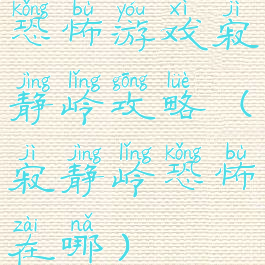 kǒng bù yóu xì jì
恐怖游戏寂
jìng lǐng gōng lüè
静岭攻略（
jì jìng lǐng kǒng bù
寂静岭恐怖
zài nǎ
在哪）